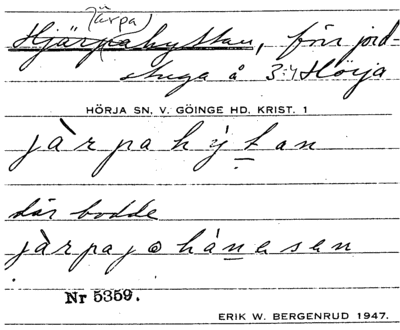 (Järpa)
Hjärpahyttan, förr jord-
stuga å 3:4 Hörja
HÖRJA SN, V. GÖINGE HD, KRIST. 1
jàrpahy̒tan
där bodde
jàrpajohànesen
Nr 5359.
ERIK W. BERGENRUD 1947.